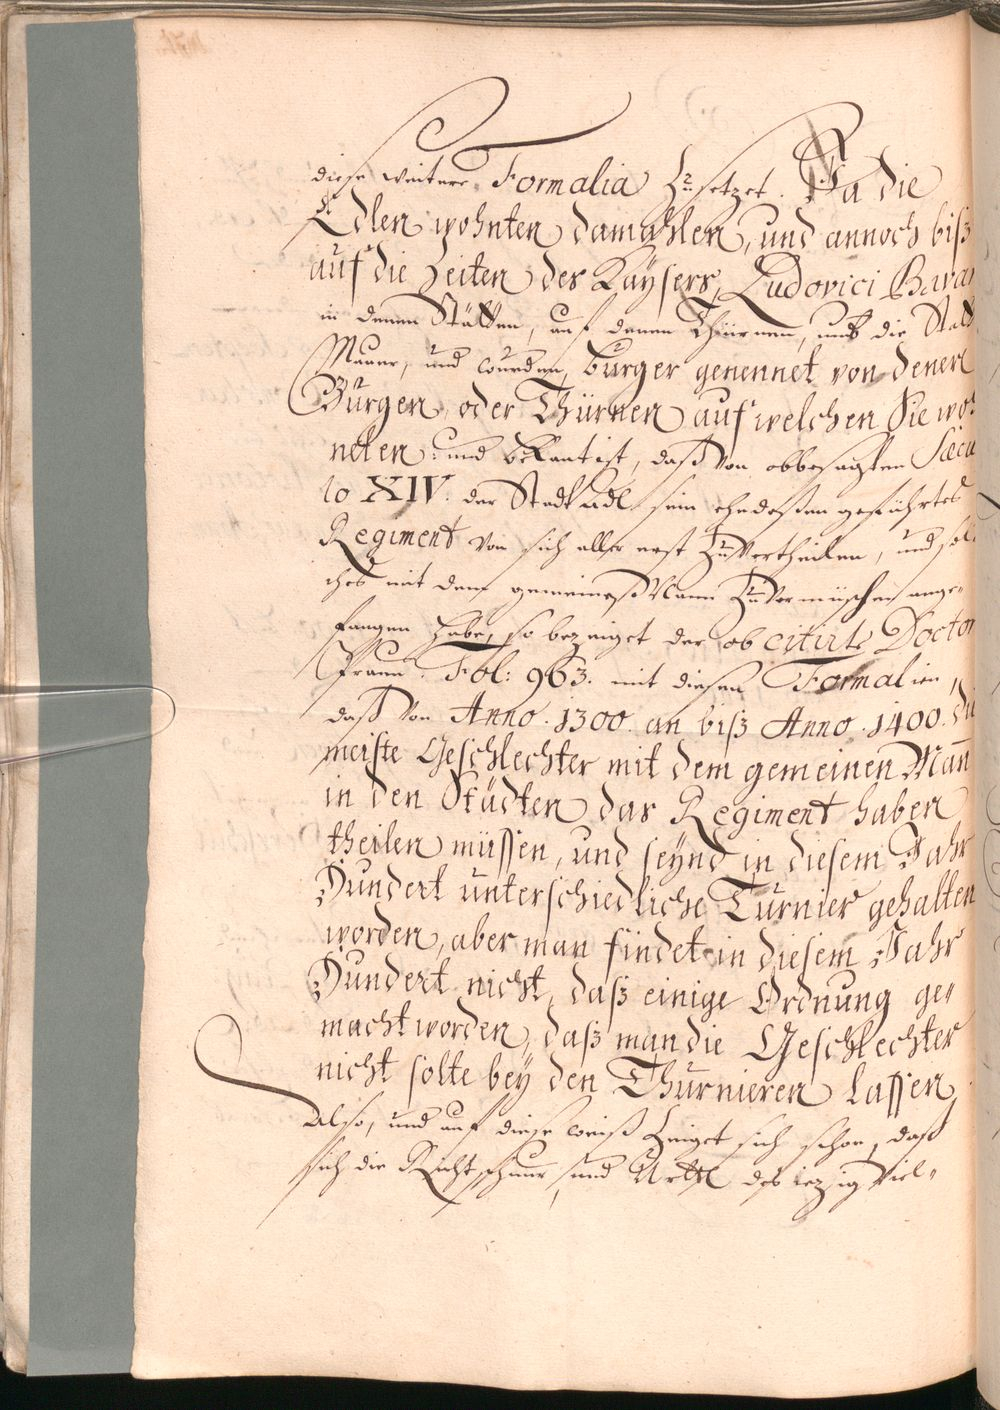 diese weitere Formalia Zusetzet. Ja die
Edlen wohnten damahlen, und annoch biß
auf die Zeiten des Kaÿsers, Ludovici Bavar
in denen Stätten, auf denen Thürnen, und die Statt
Mauer, und wurden, Burger genennet von denen
Bürgen, oder Thürnen auf welchen Sie woh
neten und bekant ist, daß von obbesagten Sæcu
lo XIV. der Stadt Adl sein ehedeßen geführtes
Regiment von sich aller erst Zuvertheilen, und sol
ches mit dem gemeinen Mann Zuvermischen ange-
fangen habe, so bezeiget der ob citirte Doctor
Fol: 963. mit diesen Formalien,
daß von Anno. 1300. an biß Anno. 1400. die
meiste Geschlechter mit dem gemeinen Mañ
in den Städten das Regiment haben
theilen müssen, und seynd in diesem Jahr
Hundert unterschiedliche Turnier gehalten
worden, aber man findet in diesem Jahr
Hundert nicht, daß einige Ordnung ge-
macht worden, daß man die Geschlechter
nicht solte beÿ den Thurnieren lassen,
Also, und auf diese weiß Zeiget sich schon, daß
sich die Richtschnur, und Urtl des iezig viel-